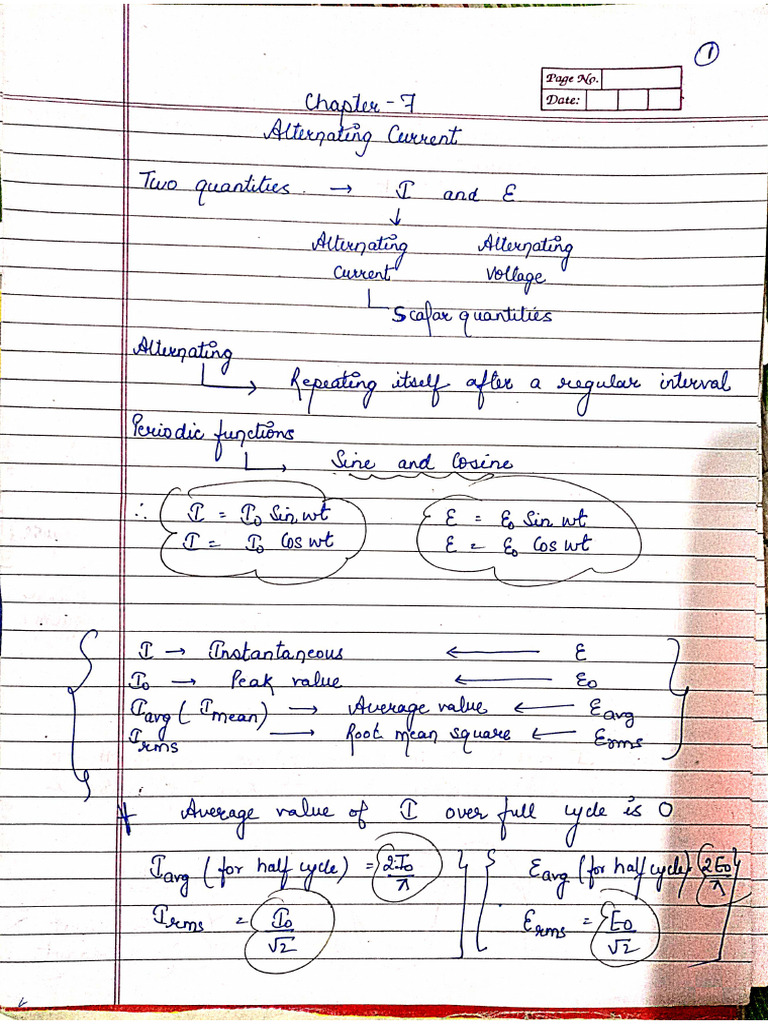 1
Page No.
Date:
Chapter - 7
Alternating Current
Two quantities → I and E
↓
Alternating Alternating
Current Voltage
Scalar quantities
Alternating
→ Repeating itself after a regular interval
Periodic functions
→ Sine and Cosine
∴ I = I₀ Sin wt E = E₀ Sin wt
I = I₀ Cos wt E = E₀ Cos wt
I → Instantaneous ← E
I₀ → Peak value ← E₀
Iavg (Imean) → Average value ← Eavg
Irms → Root mean square ← Erms
* Average value of I over full cycle is 0
Iavg (for half cycle) = 2I₀/π Eavg (for half cycle) 2E₀/π
Irms = I₀/√2 Erms = E₀/√2